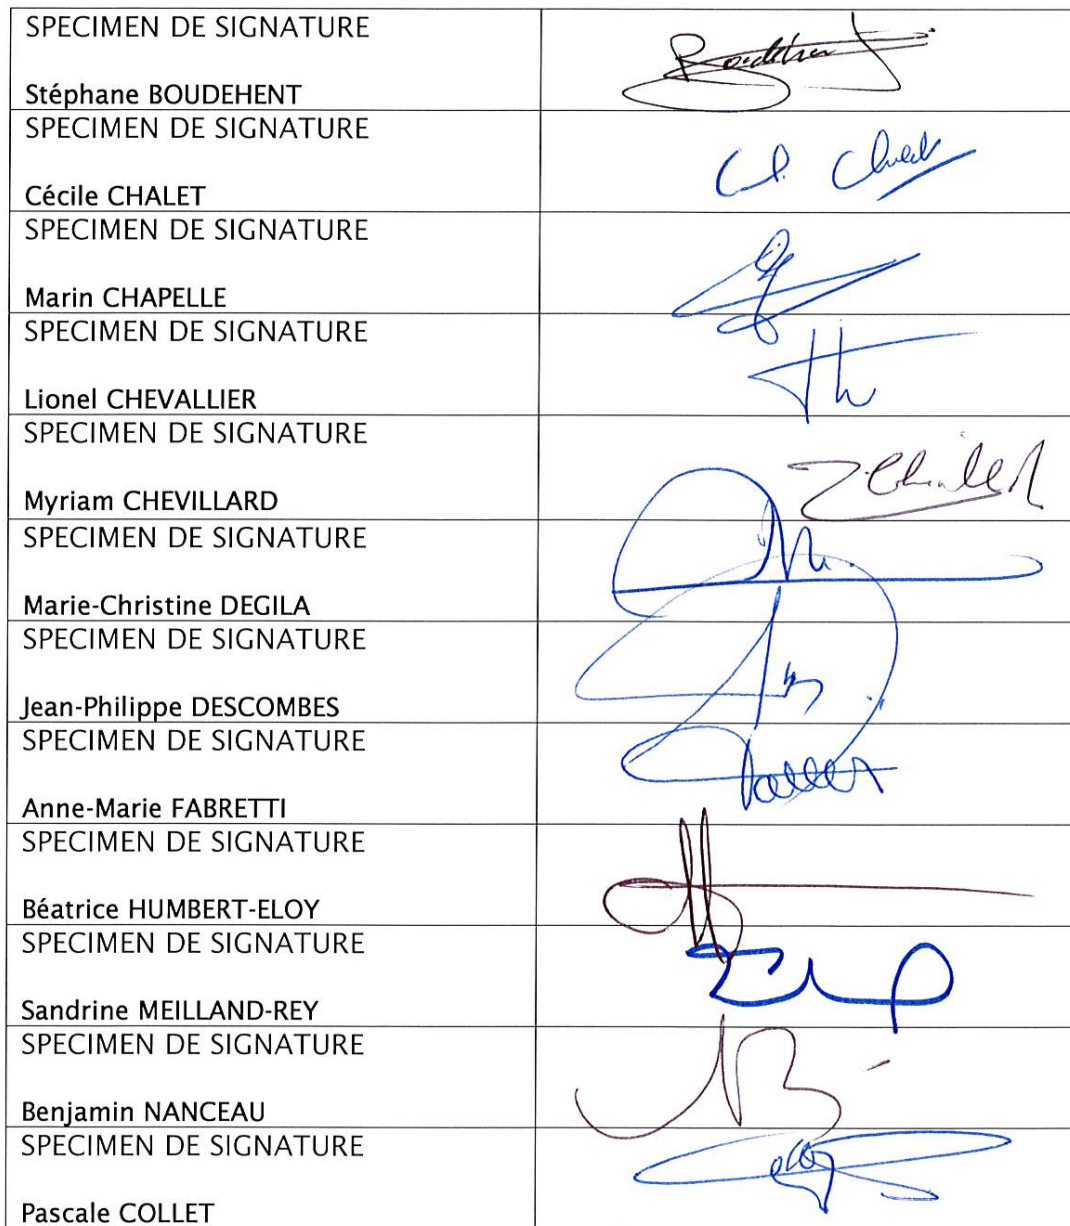 SPECIMEN DE SIGNATURE
Stéphane BOUDEHENT
SPECIMEN DE SIGNATURE
Cécile CHALET
SPECIMEN DE SIGNATURE
Marin CHAPELLE
SPECIMEN DE SIGNATURE
Lionel CHEVALLIER
SPECIMEN DE SIGNATURE
Myriam CHEVILLARD
SPECIMEN DE SIGNATURE
Marie-Christine DEGILA
SPECIMEN DE SIGNATURE
Jean-Philippe DESCOMBES
SPECIMEN DE SIGNATURE
Anne-Marie FABRETTI
SPECIMEN DE SIGNATURE
Béatrice HUMBERT-ELOY
SPECIMEN DE SIGNATURE
Sandrine MEILLAND-REY
SPECIMEN DE SIGNATURE
Benjamin NANCEAU
SPECIMEN DE SIGNATURE
Pascale COLLET